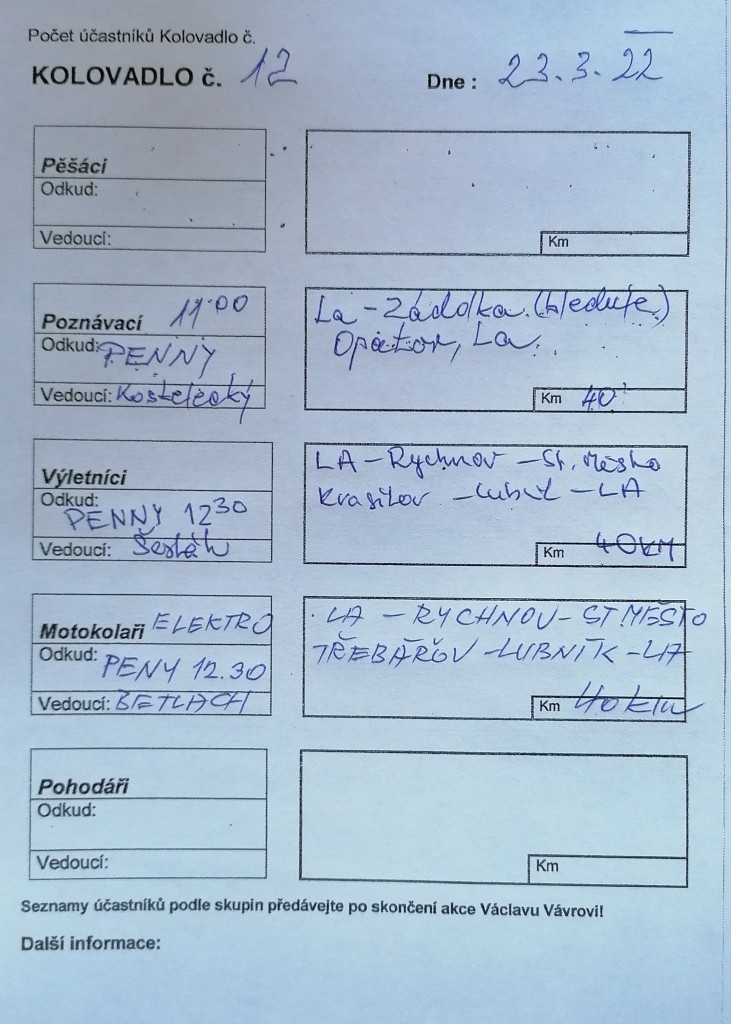 Počet účastníků Kolovadlo č.
KOLOVADLO č. 12 Dne : 23.3.22
Pěšáci
Odkud:
Vedoucí:
Km
Poznávací 11:00
Odkud: PENNY
Vedoucí: Kostelecký
La - Zádolka (bleduje)
Opatov, La.
Km 40
Výletníci
Odkud:
PENNY 12 30
Vedoucí: Šesták
LA - Rychnov - St. Město
Krasíkov - Lubník - LA
Km 40KM
Motokolaři ELEKTRO
Odkud: PENY 12.30
Vedoucí: BETLACH
LA - RYCHNOV - ST MĚSTO
TŘEBAŘOV - LUBNÍK - LA
Km 40 km
Pohodáři
Odkud:
Vedoucí:
Km
Seznamy účastníků podle skupin předávejte po skončení akce Václavu Vávrovi!
Další informace: